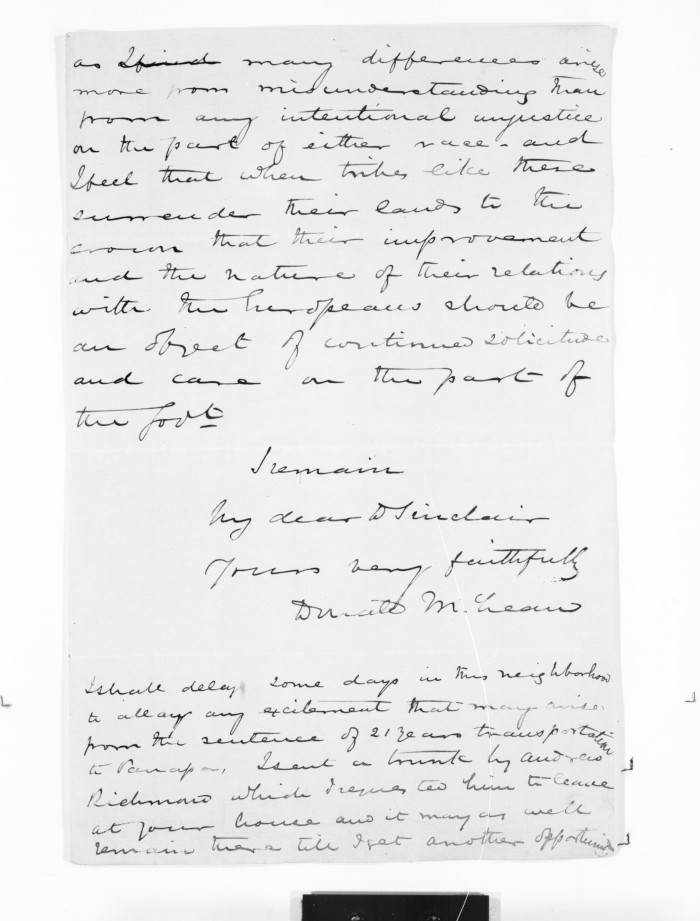 as I find many differences arise
more from misunderstanding than
from any intentional injustice
on the part of either race - and
I feel that when tribes like these
surrender their lands to the
crown that their improvement
and the nature of their relations
with the Europeans should be
an object of continued solicitude
and care on the part of
the Govt
I remain
My dear D Sinclair
Yours very faithfully
Donald McLean
I shall delay some days in this neighborhood
to allay any excitement that may arise
from the sentence of 21 years transportation
to Panapa. I sent a trunk by Andreas
Richmond which I requested him to leave
at your house and it may as well
remain there till I get another opportunity